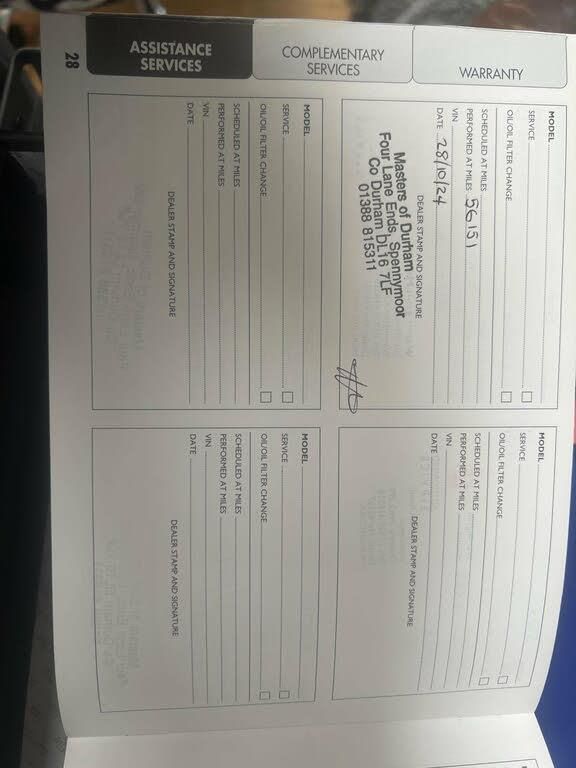 28
ASSISTANCE
SERVICES
COMPLEMENTARY
SERVICES
WARRANTY
MODEL
SERVICE
OIL/OIL FILTER CHANGE
SCHEDULED AT MILES
PERFORMED AT MILES 56151
VIN
DATE 28/10/24
DEALER STAMP AND SIGNATURE
Masters of Durham
Four Lane Ends, Spennymoor
Co Durham DL16 7LF
01388 815311
MODEL
SERVICE
OIL/OIL FILTER CHANGE
SCHEDULED AT MILES
PERFORMED AT MILES
VIN
DATE
DEALER STAMP AND SIGNATURE
MODEL
SERVICE
OIL/OIL FILTER CHANGE
SCHEDULED AT MILES
PERFORMED AT MILES
VIN
DATE
DEALER STAMP AND SIGNATURE
MODEL
SERVICE
OIL/OIL FILTER CHANGE
SCHEDULED AT MILES
PERFORMED AT MILES
VIN
DATE
DEALER STAMP AND SIGNATURE